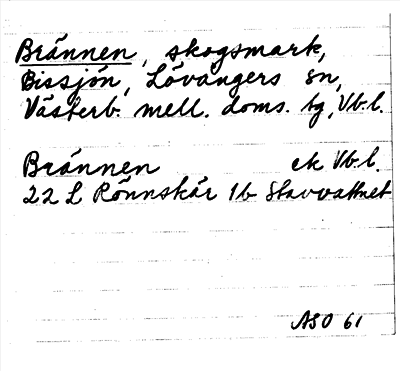 Brännen, skogsmark,
Bissjön, Lövångers sn,
Västerb. mell. doms. tg, Vb. l.
Brännen ek Vb. l.
22 L Rönnskär 1b Stavvattnet
ASO 61